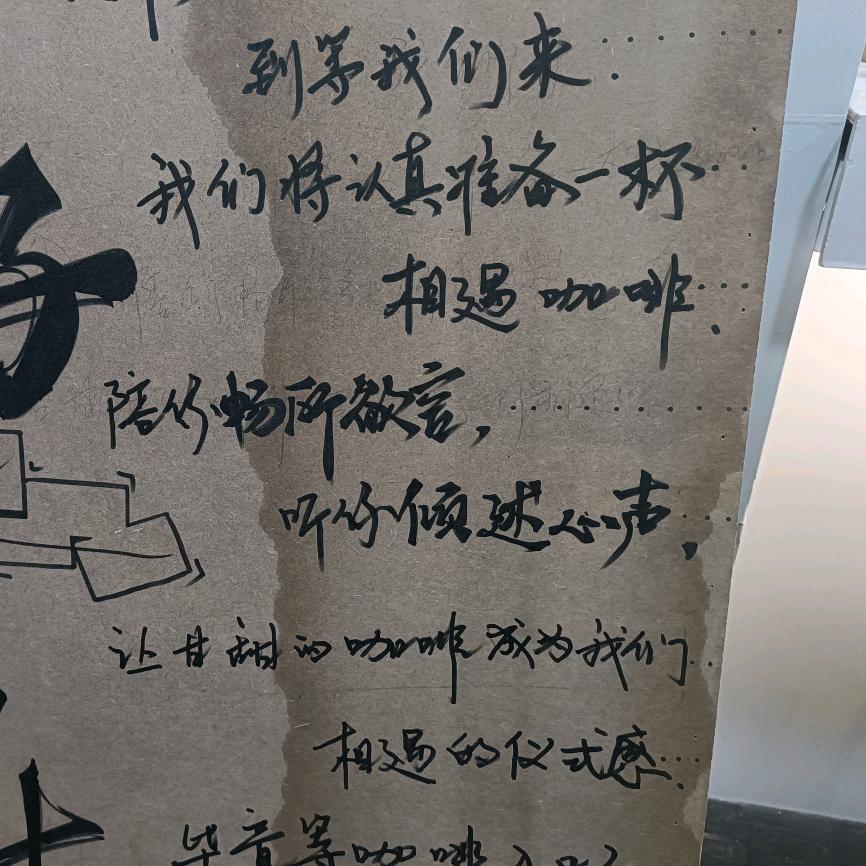 到等我们来
我们将认真准备一杯
相遇咖啡.
陪你畅所欲言,
听你倾述心声.
让甘甜的咖啡成为我们
相遇的仪式感
毕竟等咖啡